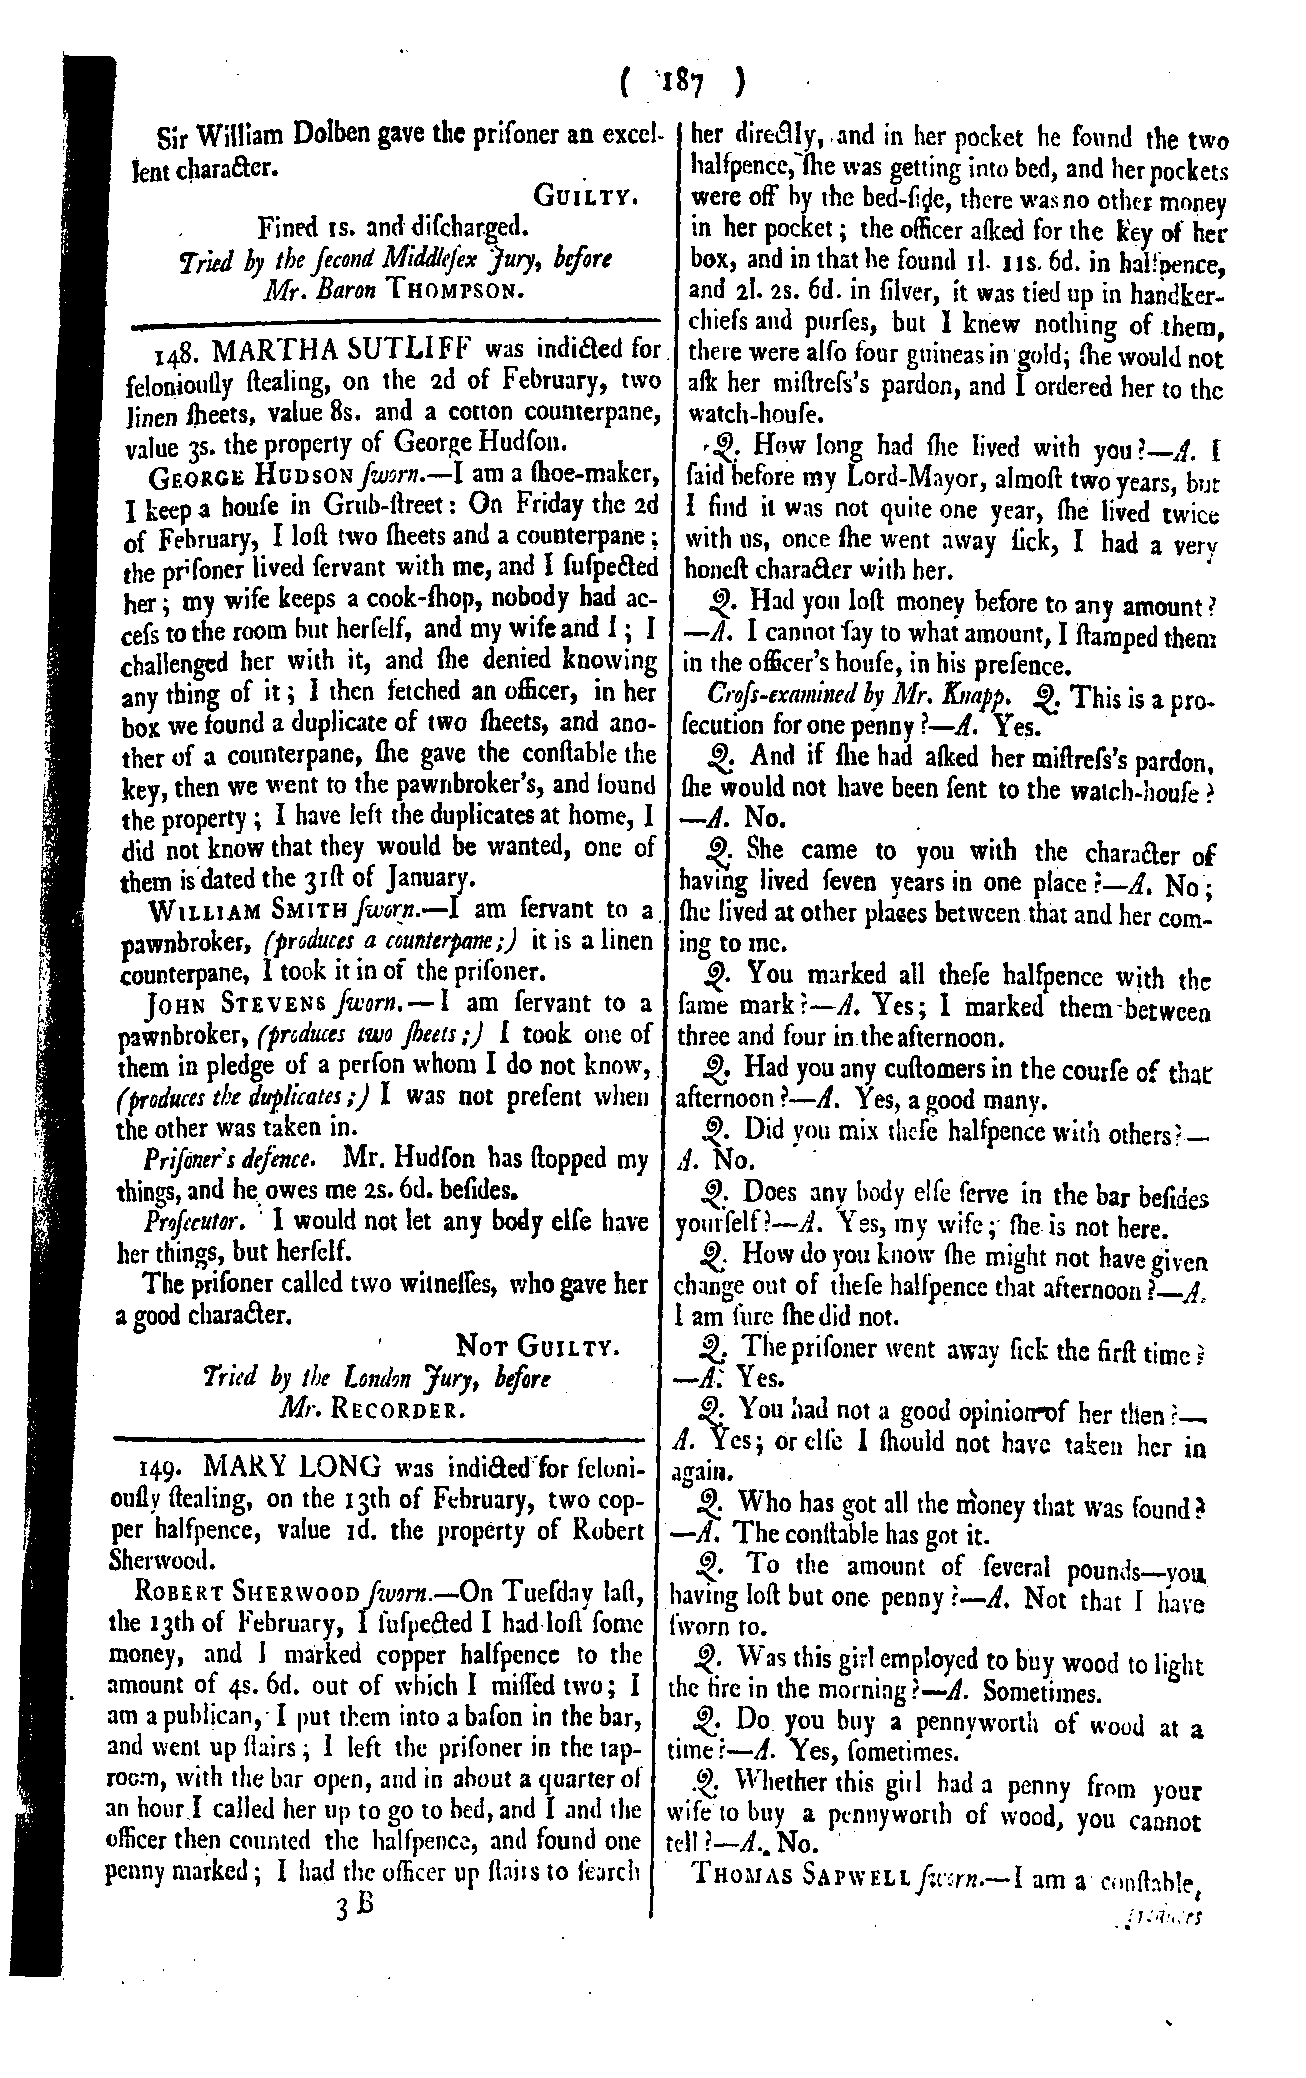 ( 187 )
Sir William Dolben gave the priſoner an excel-
lent character.
GUILTY.
Fined 1s. and diſcharged.
Tried by the ſecond Middleſex Jury, before
Mr. Baron THOMPSON.
148. MARTHA SUTLIFF was indicted for
feloniouſly ſtealing, on the 2d of February, two
linen ſheets, value 8s. and a cotton counterpane,
value 3s. the property of George Hudſon.
GEORGE HUDSON ſworn.—I am a ſhoe-maker,
I keep a houſe in Grub-ſtreet: On Friday the 2d
of February, I loſt two ſheets and a counterpane;
the priſoner lived ſervant with me, and I ſuſpected
her; my wife keeps a cook-ſhop, nobody had ac-
ceſs to the room but herſelf, and my wife and I; I
challenged her with it, and ſhe denied knowing
any thing of it; I then fetched an officer, in her
box we found a duplicate of two ſheets, and ano-
ther of a counterpane, ſhe gave the conſtable the
key, then we went to the pawnbroker's, and found
the property; I have left the duplicates at home, I
did not know that they would be wanted, one of
them is dated the 31ſt of January.
WILLIAM SMITH ſworn.—I am ſervant to a
pawnbroker, (produces a counterpane;) it is a linen
counterpane, I took it in of the priſoner.
JOHN STEVENS ſworn.—I am ſervant to a
pawnbroker, (produces two ſheets;) I took one of
them in pledge of a perſon whom I do not know,
(produces the duplicates;) I was not preſent when
the other was taken in.
Priſoner's defence. Mr. Hudſon has ſtopped my
things, and he owes me 2s. 6d. beſides.
Proſecutor. I would not let any body elſe have
her things, but herſelf.
The priſoner called two witneſſes, who gave her
a good character.
NOT GUILTY.
Tried by the London Jury, before
Mr. RECORDER.
149. MARY LONG was indicted for feloni-
ouſly ſtealing, on the 13th of February, two cop-
per halfpence, value 1d. the property of Robert
Sherwood.
ROBERT SHERWOOD ſworn.—On Tueſday laſt,
the 13th of February, I ſuſpected I had loſt ſome
money, and I marked copper halfpence to the
amount of 4s. 6d. out of which I miſſed two; I
am a publican, I put them into a baſon in the bar,
and went up ſtairs; I left the priſoner in the tap-
room, with the bar open, and in about a quarter of
an hour I called her up to go to bed, and I and the
officer then counted the halfpence, and found one
penny marked; I had the officer up ſtairs to ſearch
3 B
her directly, and in her pocket he found the two
halfpence, ſhe was getting into bed, and her pockets
were off by the bed-ſide, there was no other money
in her pocket; the officer aſked for the key of her
box, and in that he found 1l. 11s. 6d. in halfpence,
and 2l. 2s. 6d. in ſilver, it was tied up in handker-
chiefs and purſes, but I knew nothing of them,
there were alſo four guineas in gold; ſhe would not
aſk her miſtreſs's pardon, and I ordered her to the
watch-houſe.
Q. How long had ſhe lived with you?—A. I
ſaid before my Lord-Mayor, almoſt two years, but
I find it was not quite one year, ſhe lived twice
with us, once ſhe went away ſick, I had a very
honeſt character with her.
Q. Had you loſt money before to any amount?
—A. I cannot ſay to what amount, I ſtamped them
in the officer's houſe, in his preſence.
Croſs-examined by Mr. Knapp. Q. This is a pro-
ſecution for one penny?—A. Yes.
Q. And if ſhe had aſked her miſtreſs's pardon,
ſhe would not have been ſent to the watch-houſe?
—A. No.
Q. She came to you with the character of
having lived ſeven years in one place?—A. No;
ſhe lived at other places between that and her com-
ing to me.
Q. You marked all theſe halfpence with the
ſame mark?—A. Yes; I marked them between
three and four in the afternoon.
Q. Had you any cuſtomers in the courſe of that
afternoon?—A. Yes, a good many.
Q. Did you mix theſe halfpence with others?—
A. No.
Q. Does any body elſe ſerve in the bar beſides
yourſelf?—A. Yes, my wife; ſhe is not here.
Q. How do you know ſhe might not have given
change out of theſe halfpence that afternoon?—A.
I am ſure ſhe did not.
Q. The priſoner went away ſick the firſt time?
—A. Yes.
Q. You had not a good opinion of her then?—
A. Yes; or elſe I ſhould not have taken her in
again.
Q. Who has got all the money that was found?
—A. The conſtable has got it.
Q. To the amount of ſeveral pounds—you
having loſt but one penny?—A. Not that I have
ſworn to.
Q. Was this girl employed to buy wood to light
the fire in the morning?—A. Sometimes.
Q. Do you buy a pennyworth of wood at a
time?—A. Yes, ſometimes.
Q. Whether this girl had a penny from your
wife to buy a pennyworth of wood, you cannot
tell?—A. No.
THOMAS SAPWELL ſworn.—I am a conſtable,